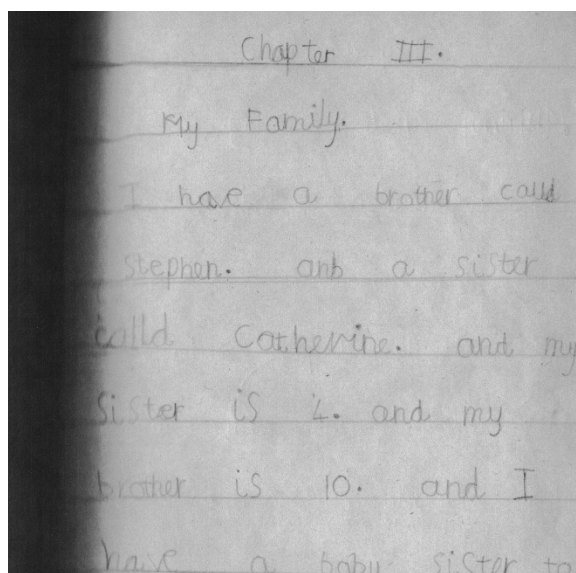 Chapter III.
My Family.
I have a brother calld
stephen. anb a sister
calld Catherine. and my
sister is 4. and my
brother is 10. and I
have a baby sister to